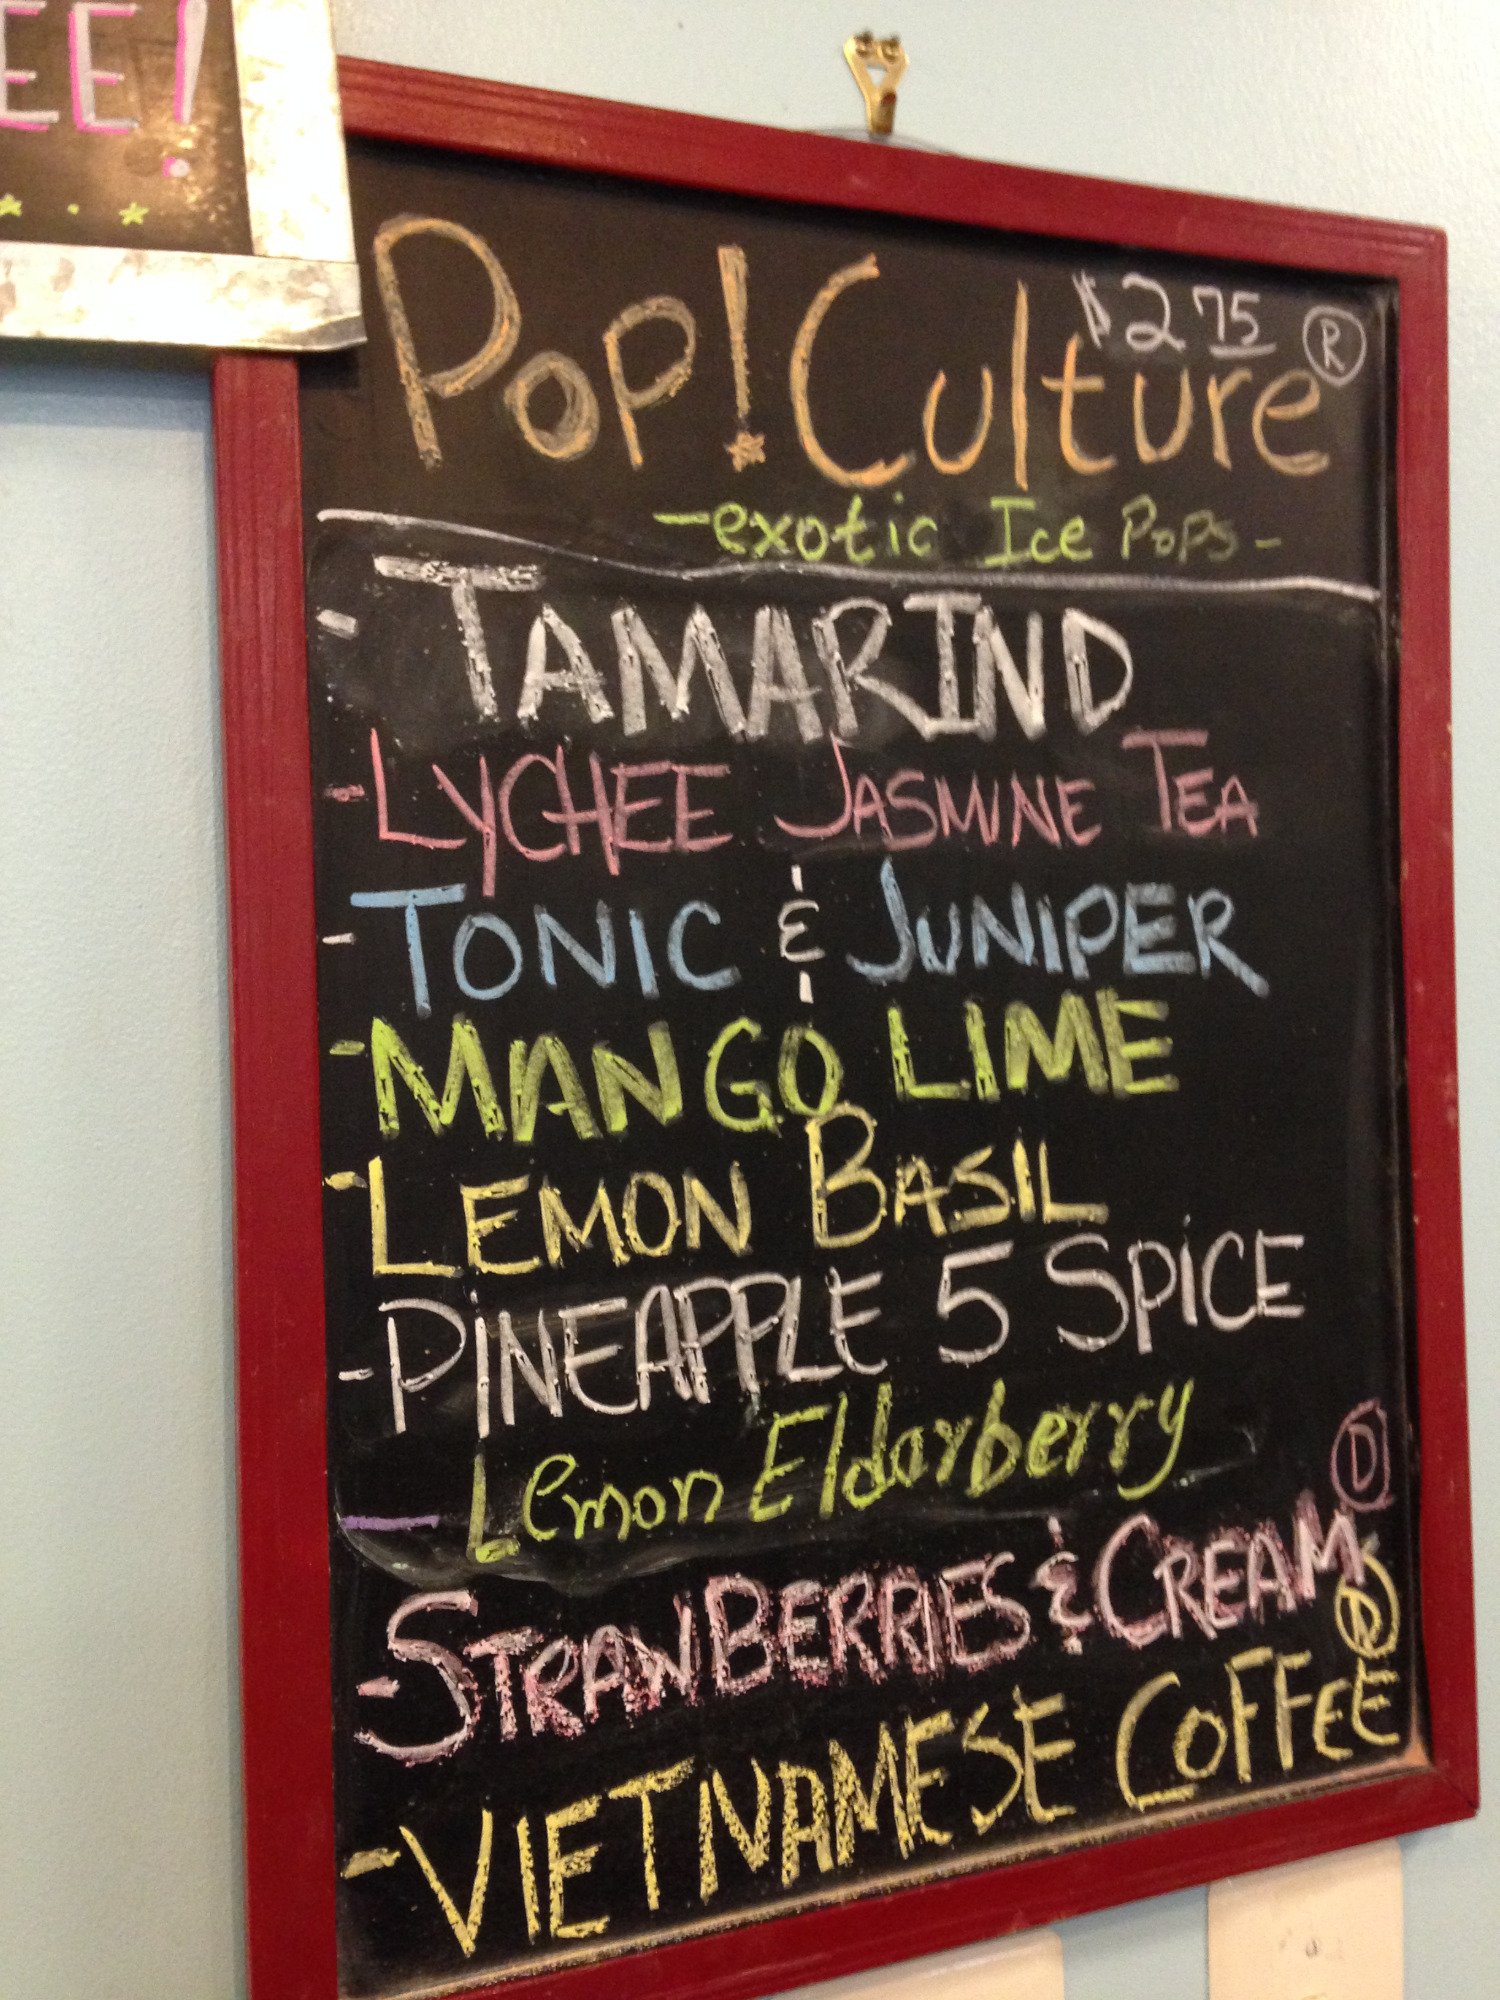 EE!
Pop! Culture ®
$2 75
-exotic Ice Pops-
- TAMARIND
- LYCHEE JASMINE TEA
- TONIC & JUNIPER
- MANGO LIME
- LEMON BASIL
- PINEAPPLE 5 SPICE
- Lemon Elderberry
- STRAWBERRIES & CREAM Ⓓ
- VIETNAMESE COFFEE Ⓓ